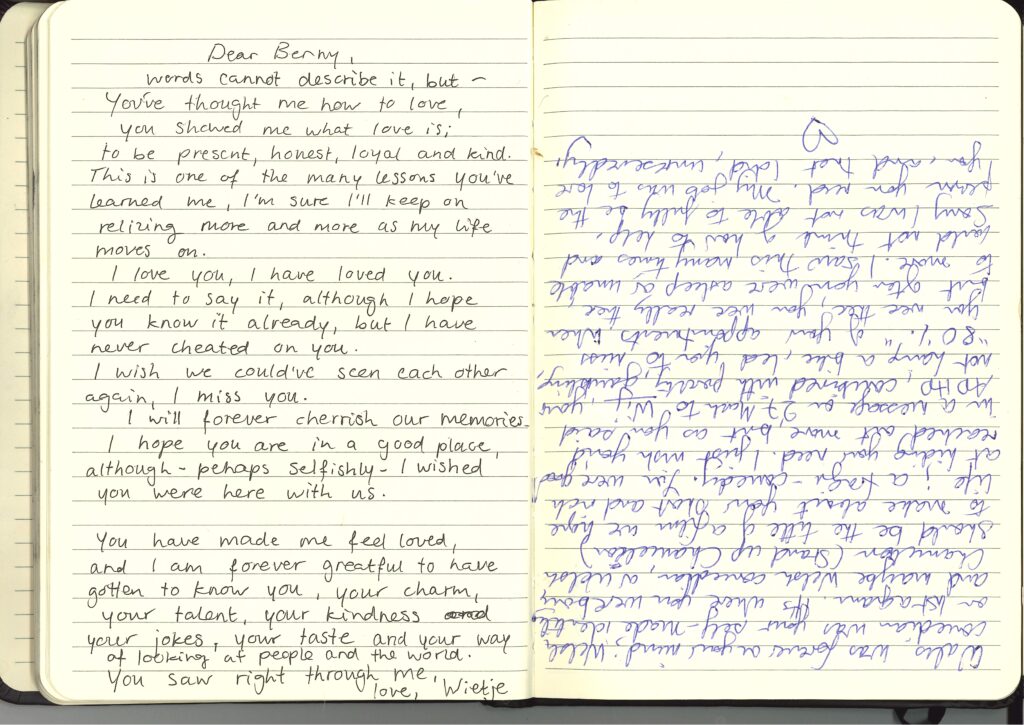 Dear Berny,
words cannot describe it, but –
You've thought me how to love,
you showed me what love is;
to be present, honest, loyal and kind.
This is one of the many lessons you've
learned me, I'm sure I'll keep on
relizing more and more as my life
moves on.
I love you, I have loved you.
I need to say it, although I hope
you know it already, but I have
never cheated on you.
I wish we could've seen each other
again, I miss you.
I will forever cherrish our memories.
I hope you are in a good place,
although - pehaps selfishly - I wished
you were here with us.
You have made me feel loved,
and I am forever greatful to have
gotten to know you, your charm,
your talent, your kindness
your jokes, your taste and your way
of looking at people and the world.
You saw right through me,
love, Wietje
Wales was forever on your mind; Welsh
comedian was your self-made identity
on Instagram. It's where you were born,
and maybe Welsh comedian, a Welsh
Chameleon (Stand up Chameleon)
should be the title of a film we hope
to make about your short and rich
life; a tragi-comedy. You were good
at hiding your need. I just wish you'd
reached out more but as you said
in a message on 27 March to your
ADHD, combined with poverty, gambling,
not having a bike, led you to miss
"80%" of your appointments when
you were there you were really there
but often you were asleep or unable
to move. I saw this many times and
could not think of how to help,
Sorry I was not able to fully be the
person you need. My job was to love
you, and that I did, unreservedly.